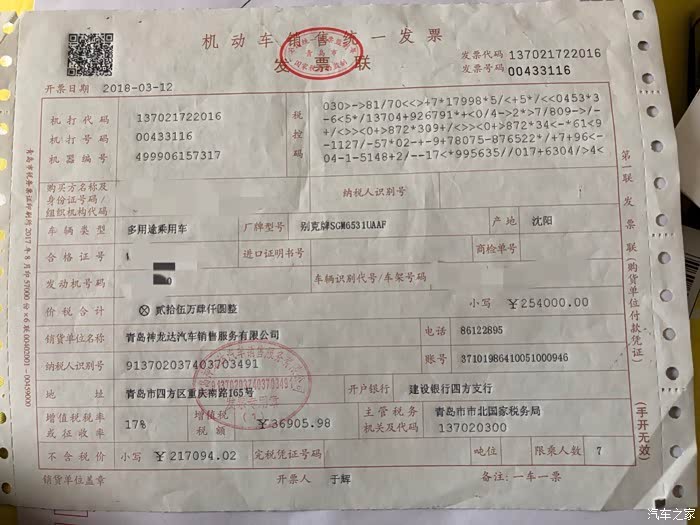 机动车销售统一发票
发票联
发票代码 137021722016
发票号码 00433116
开票日期 2018-03-12
机打代码 137021722016
机打号码 00433116
机器编号 499906157317
税控码
030>->81/70<<>+7*17998*5/<+5*/<<0453*3
-6<5*/13704+926791*+<0/4->2*>7/809->/-
+/<>><0+>872*309+/<>><0+>872*34<-*61<9
-1127/-57*02-+-9+78075-876522*/+7+96<-
04-1-5148+2/--17<*995635//017+6304/>4<
购买方名称及身份证号码/组织机构代码
纳税人识别号
车辆类型 多用途乘用车 厂牌型号 别克牌SGM6531UAAF 产地 沈阳
合格证号 进口证明书号 商检单号
发动机号码 车辆识别代号/车架号码
价税合计 ⊗贰拾伍万肆仟圆整 小写 ¥254000.00
销货单位名称 青岛神龙达汽车销售服务有限公司 电话 86122895
纳税人识别号 913702037403703491 账号 37101986410051000946
地址 青岛市四方区重庆南路165号 开户银行 建设银行四方支行
增值税税率或征收率 17% 增值税税额 ¥36905.98 主管税务机关及代码 青岛市市北国家税务局 137020300
不含税价 小写 ¥217094.02 完税凭证号码 吨位 限乘人数 7
销货单位盖章 开票人 于辉 备注:一车一票
第一联 发票联(购货单位付款凭证)
(手开无效)
913702037403703491
汽车之家